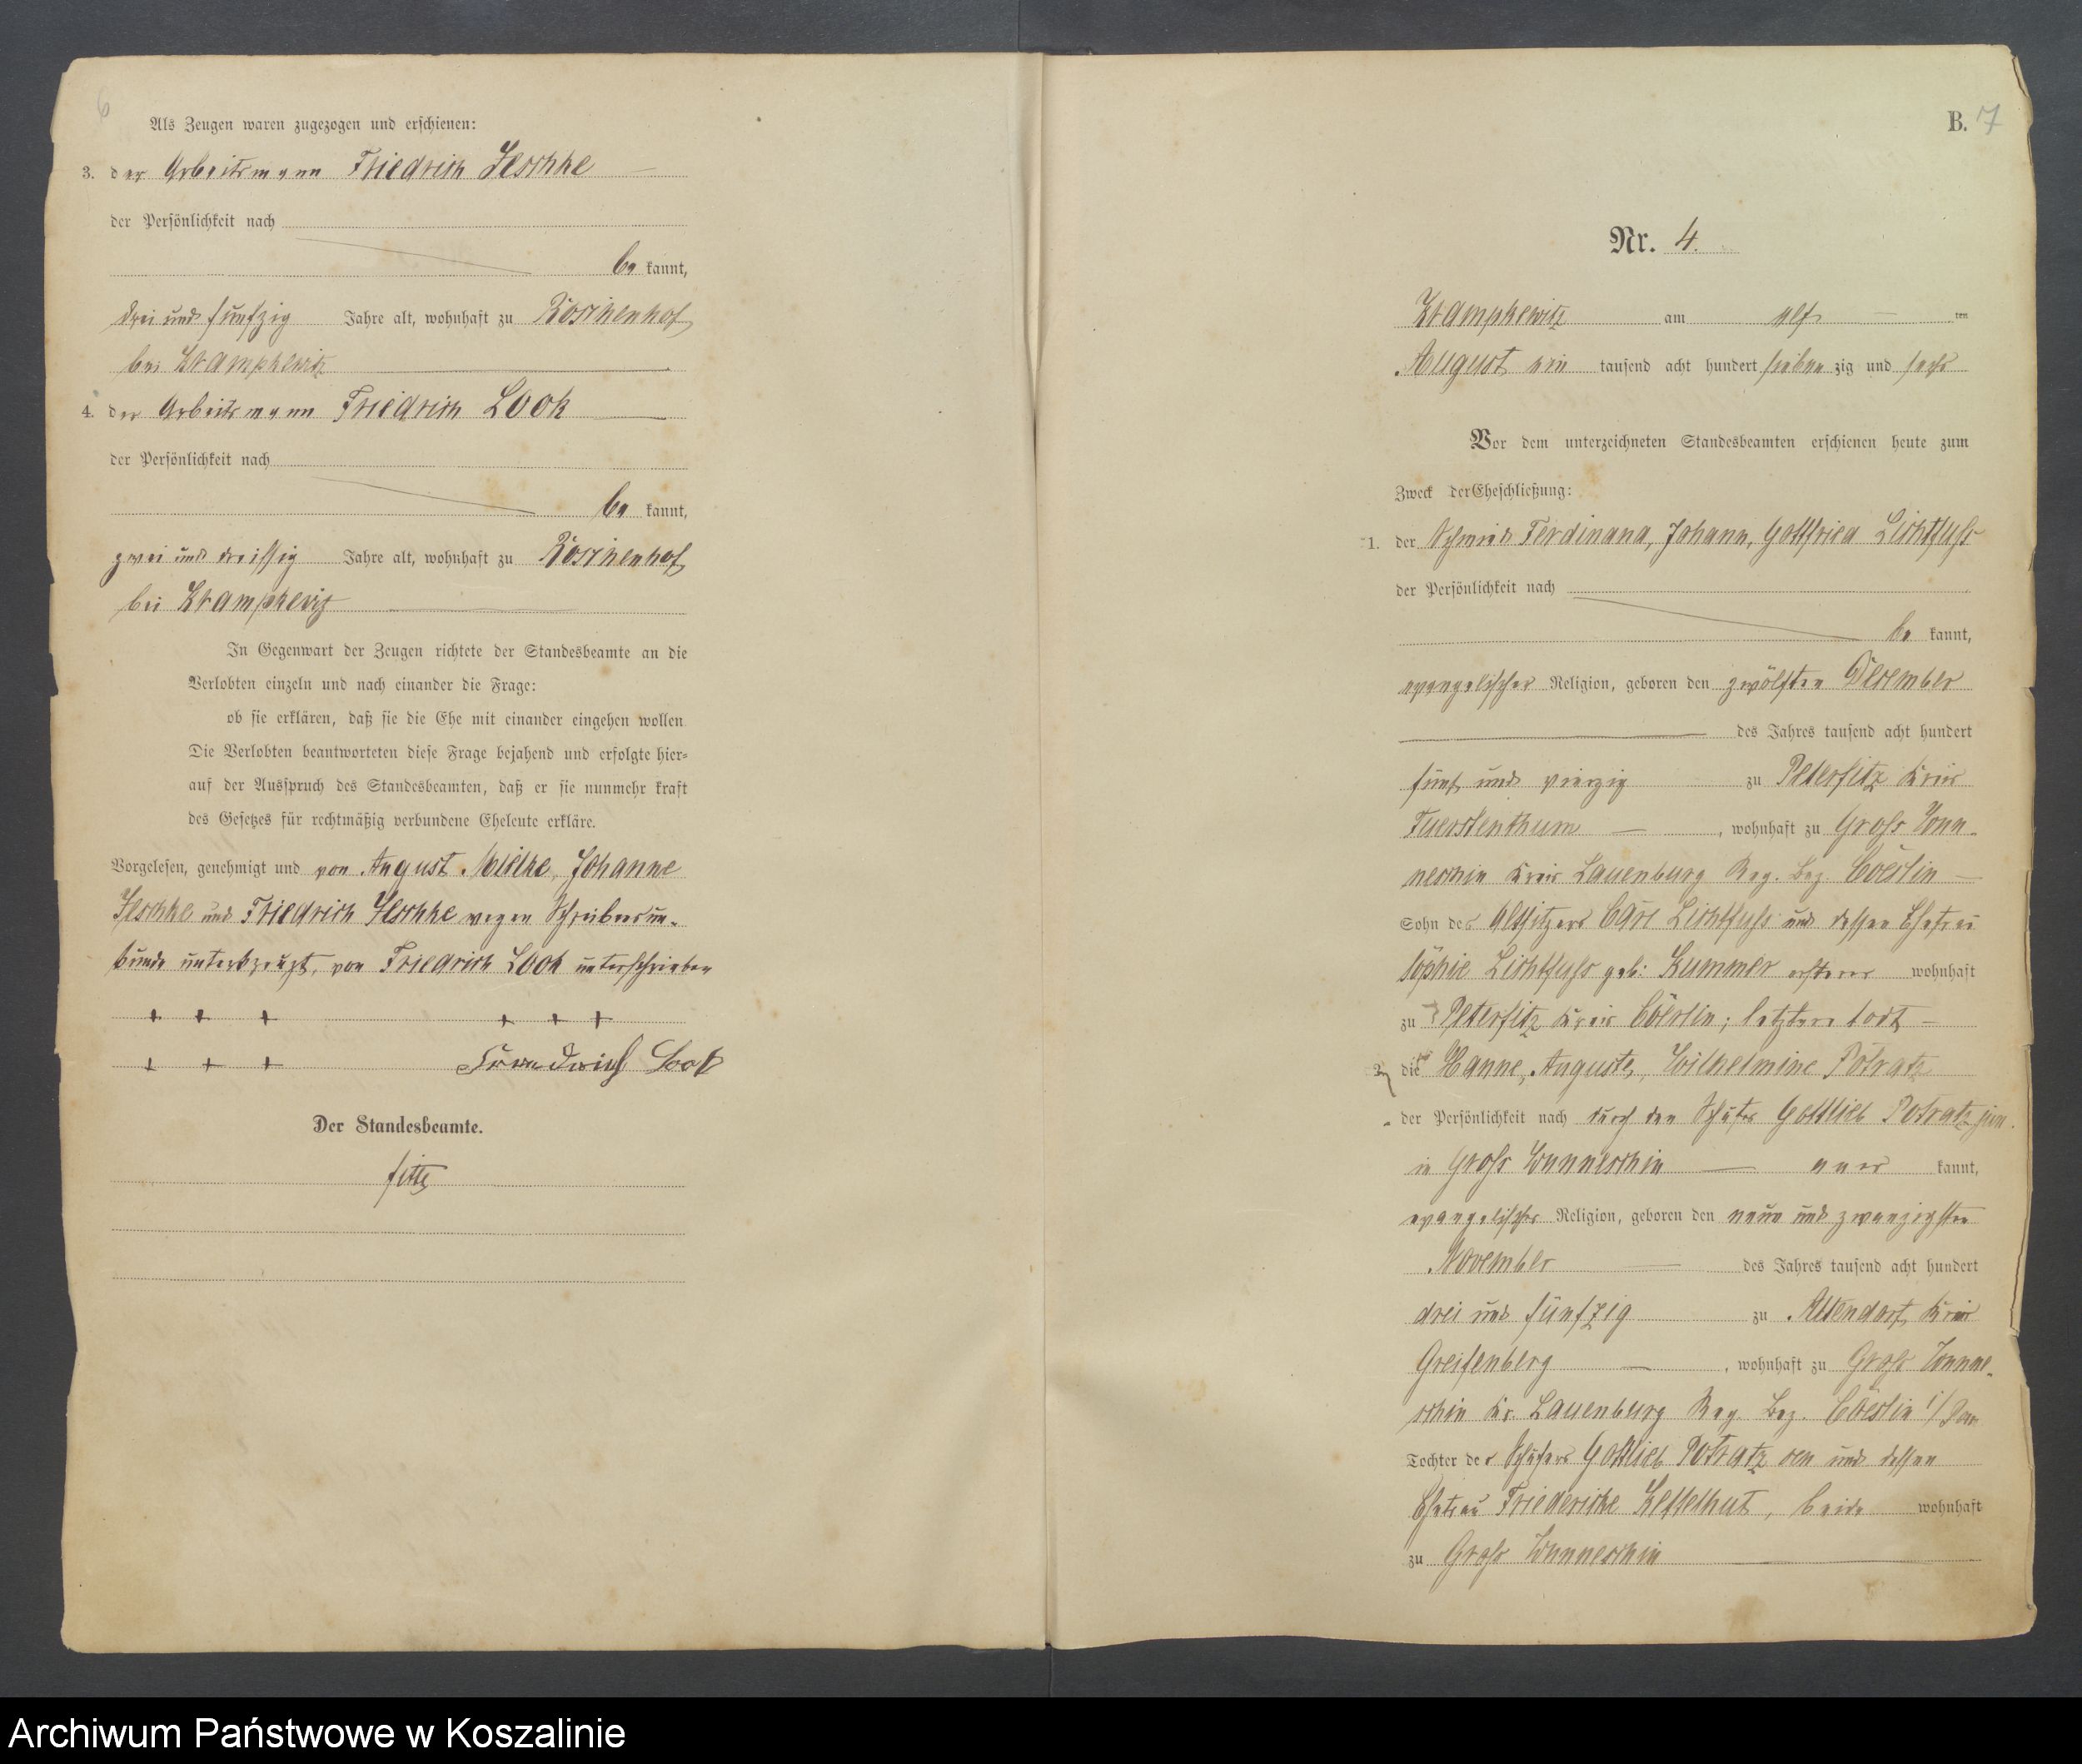 6
Als Zeugen waren zugezogen und erschienen:
3. der Arbeitsmann Friedrich Jeschke
der Persönlichkeit nach
be kannt,
drei und fünfzig Jahre alt, wohnhaft zu Röschenhof
bei Krampkewitz
4. der Arbeitsmann Friedrich Look
der Persönlichkeit nach
be kannt,
zwei und dreissig Jahre alt, wohnhaft zu Röschenhof
bei Krampkewitz
In Gegenwart der Zeugen richtete der Standesbeamte an die
Verlobten einzeln und nach einander die Frage:
ob sie erklären, daß sie die Ehe mit einander eingehen wollen
Die Verlobten beantworteten diese Frage bejahend und erfolgte hier-
auf der Ausspruch des Standesbeamten, daß er sie nunmehr kraft
des Gesetzes für rechtmäßig verbundene Eheleute erkläre.
Vorgelesen, genehmigt und von August Mielke, Johanne
Jeschke und Friedrich Jeschke wegen Schreibensun-
kunde unterkreuzt, von Friedrich Look unterschrieben
+ + + + + +
+ + + Friedrich Look
Der Standesbeamte.
B. 7
Nr. 4.
Krampkewitz am elf ten
August ein tausend acht hundert sieben zig und sechs
Vor dem unterzeichneten Standesbeamten erschienen heute zum
Zweck der Eheschließung:
1. der Schmied Ferdinand, Johann, Gottfried Lichtfuss
der Persönlichkeit nach
be kannt,
evangelischer Religion, geboren den zwölften Dezember
des Jahres tausend acht hundert
fünf und vierzig zu Peterfitz Kreis
Fuerstenthum, wohnhaft zu Gross Wun-
neschin Kreis Lauenburg Reg. Bez. Cöslin
Sohn des Altsitzers Carl Lichtfuss und dessen Ehefrau
Sophie Lichtfuss geb: Kummer ersterer wohnhaft
zu Peterfitz Kreis Cöerlin; letztere todt
2. die Hanne, Auguste, Wilhelmine Potratz
der Persönlichkeit nach durch den Schäfer Gottlieb Potratz jun.
in Gross Wunneschin aner kannt,
evangelischer Religion, geboren den neun und zwanzigsten
November des Jahres tausend acht hundert
drei und fünfzig zu Altendorf, Kreis
Greifenberg, wohnhaft zu Gross Wunne-
schin Kr. Lauenburg Reg. Bez. Cöslin i/Pom
Tochter des Schäfers Gottlieb Potratz sen und dessen
Ehefrau Friedericke Kesselhut, beide wohnhaft
zu Gross Wunneschin
Archiwum Państwowe w Koszalinie